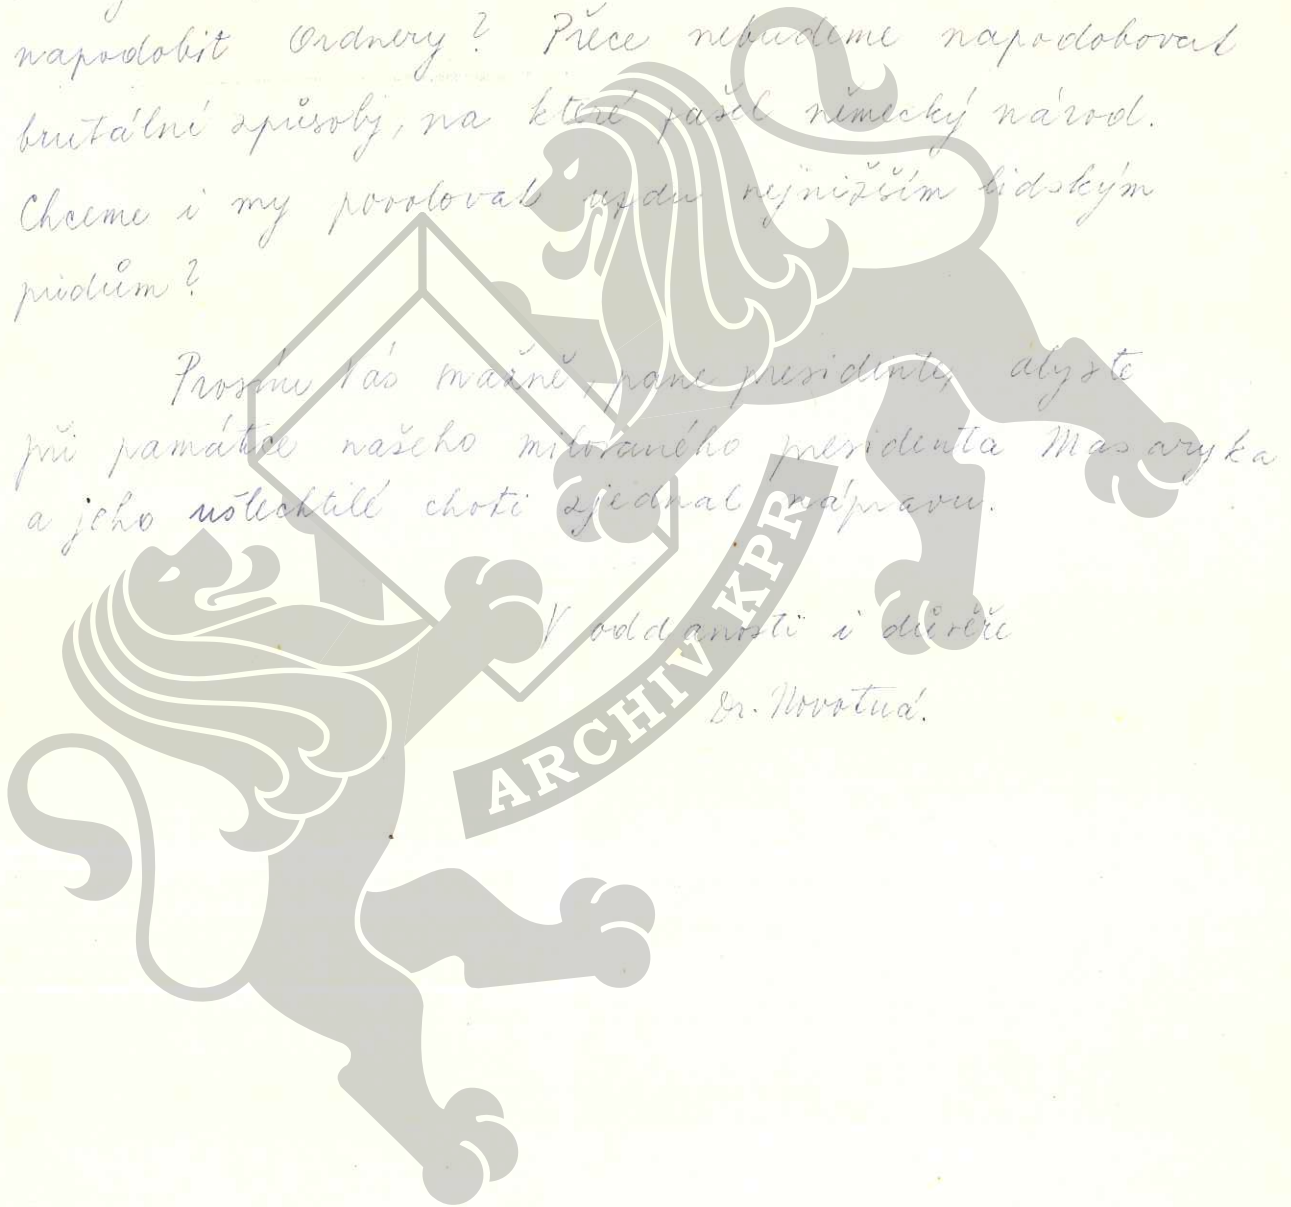 napodobit Ordnery? Přece nebudeme napodobovat
brutální způsoby, na které pašel německý národ.
Chceme i my povolovat uzdu nejnižším lidským
pudům?
Prosím Vás snažně, pane presidente, abyste
při památce našeho milovaného presidenta Masaryka
a jeho ušlechtilé choti zjednal nápravu.
V oddanosti i důvěře
Dr. Novotná.
ARCHIV KPR.